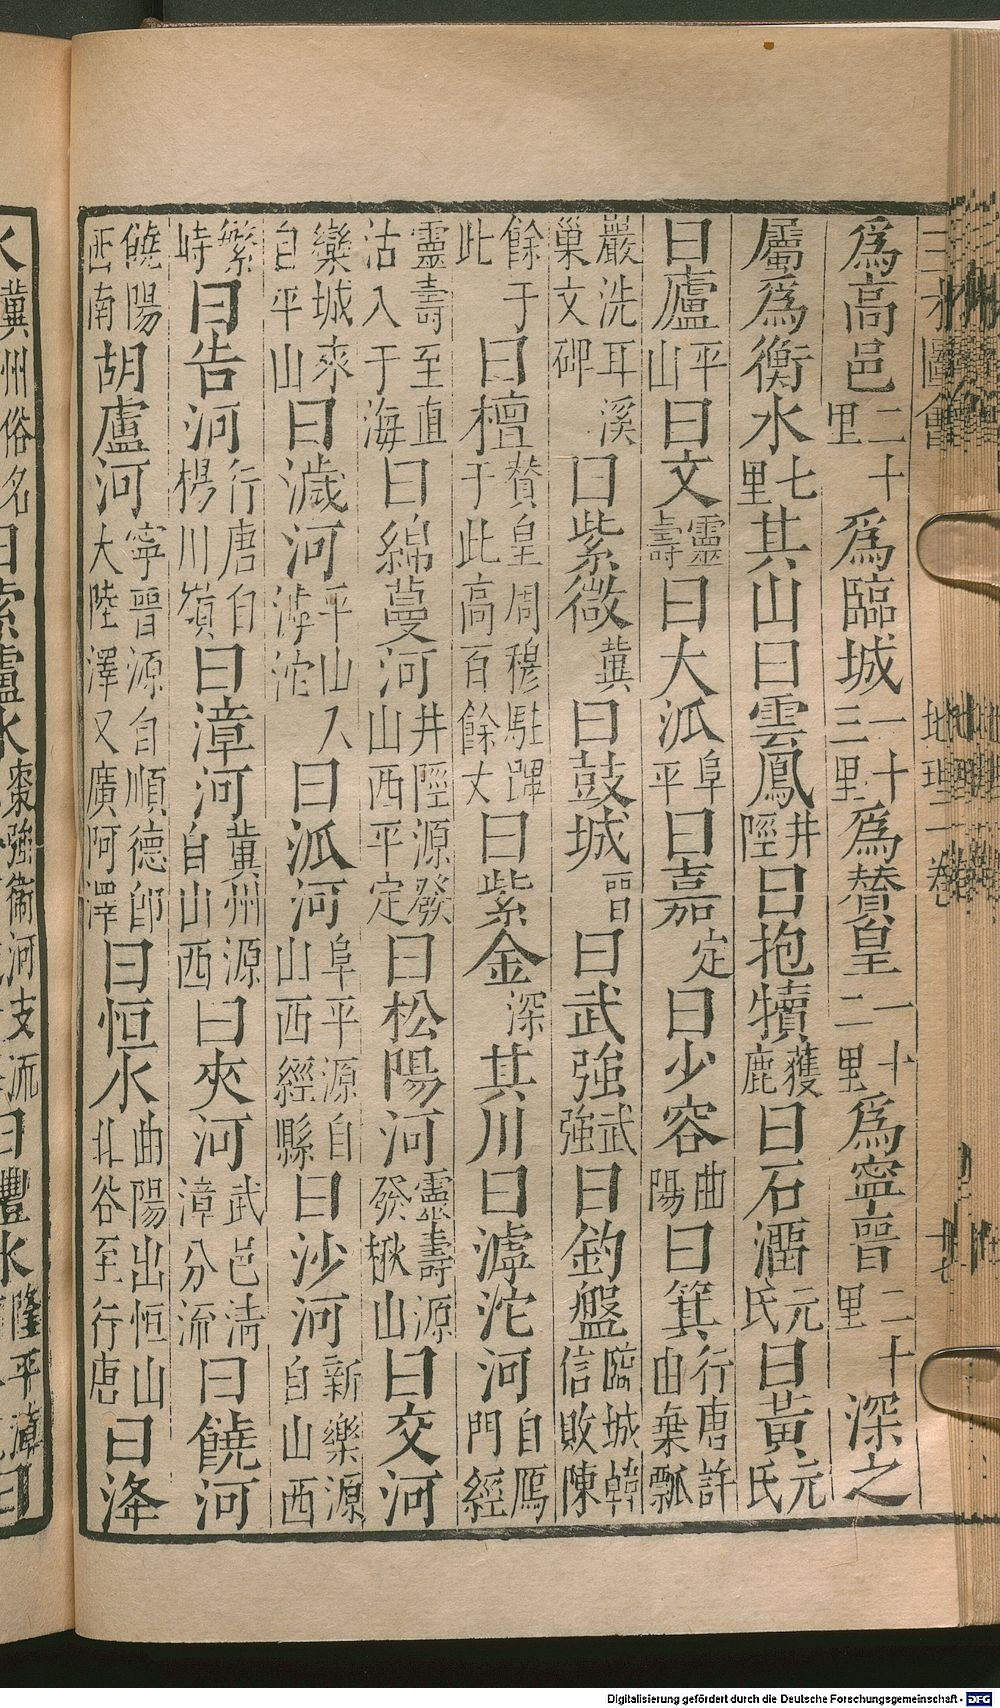 三才圖會 地理二卷
為高邑二十里為臨城一十三里為贊皇一十二里為寧晉二十里深之
屬為衡水七里其山曰雲鳳井陘曰抱犢獲鹿曰石元氏曰黃元氏
曰廬平山曰文靈壽曰大泒阜平曰嘉定曰少容曲陽曰箕行唐許由棄瓢
嚴洗耳溪巢文碑曰紫微冀曰鼓城晉曰武強武強曰釣盤臨城韓信敗陳
餘于此曰檀贊皇周穆駐蹕于此高百餘丈曰紫金深其川曰滹沱河自鴈門經
靈壽至直沽入于海曰綿蔓河井陘源發山西平定曰松陽河靈壽源發楸山曰交河
欒城來自平山曰濊河平山入滹沱曰泒河阜平源自山西經縣曰沙河新樂源自山西
繁峙曰告河行唐自楊川嶺曰漳河冀州源自山西曰夾河武邑清漳分流曰饒河
饒陽西南胡盧河寧晉源自順德郎大陸澤又廣阿澤曰恒水曲陽出恒山北谷至行唐曰洚
水冀州俗名曰索盧水棗強衞河支流曰豐水隆平漳曰
Digitalisierung gefördert durch die Deutsche Forschungsgemeinschaft - DFG